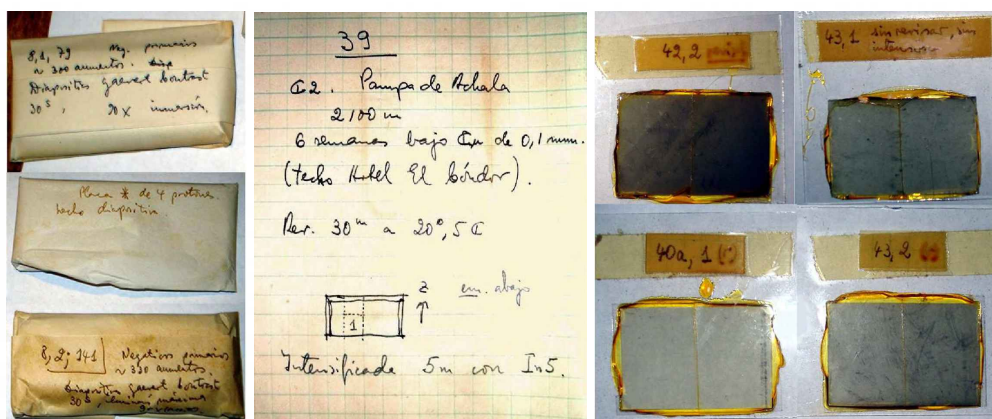 8,1,79 Neg. primarios
~ 300 aumentos.
Diapositiva gaevert kontrast
30ˢ, 90x inmersión
Placa * de 4 protones.
hecho diapositiva.
8,2; 141 Negativos primarios
~ 330 aumentos.
Diapositiva gaevert kontrast
30ˢ,
39
C2. Pampa de Achala
2100 m
6 semanas bajo Cu de 0,1 mm.
(techo Hotel El Cóndor).
Rev. 30ᵐ a 20º,5 C
z em. abajo
1
Intensificada 5m con In5.
42,2
43,1 sin revisar, sin
intensos
40a, 1
43,2